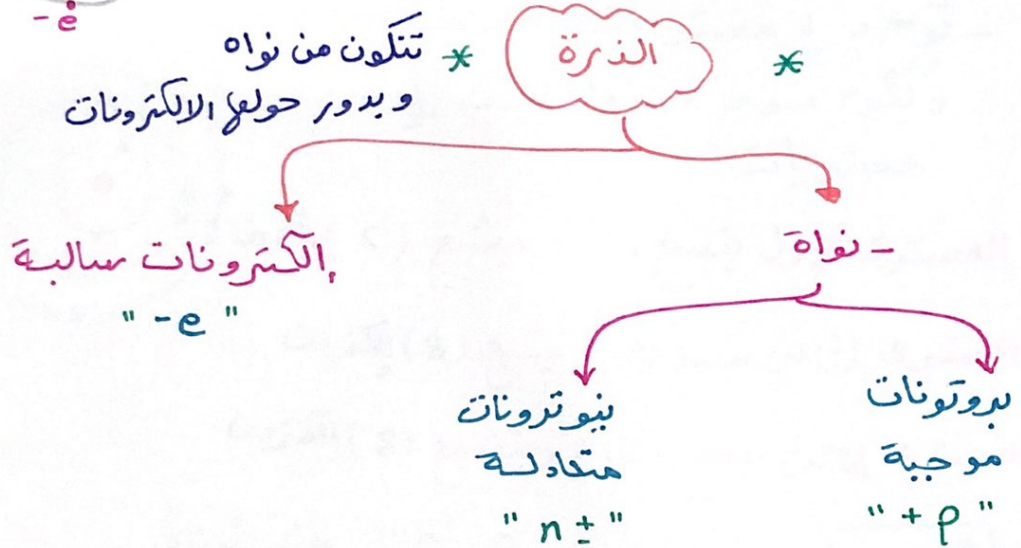 -e
* الذرة * تتكون من نواه
و بدور حولها الالكترونات
- نواة
إلكترونات سالبة
" -e "
بروتونات
موجبة
" + p "
نيوترونات
متعادلة
" n ± "